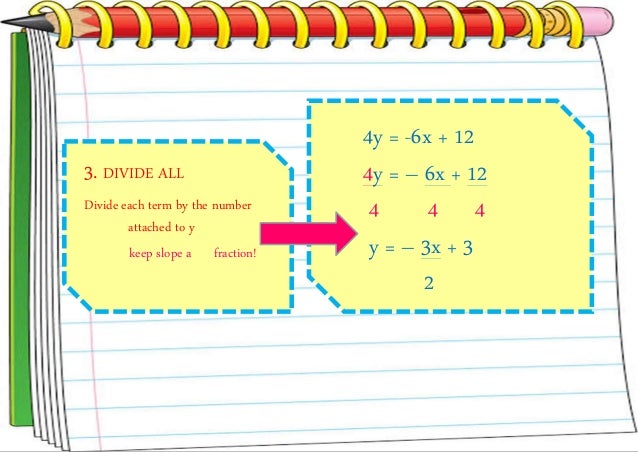 3. DIVIDE ALL
Divide each term by the number
attached to y
keep slope a fraction!
4y = -6x + 12
4y = – 6x + 12
4 4 4
y = – 3x + 3
2